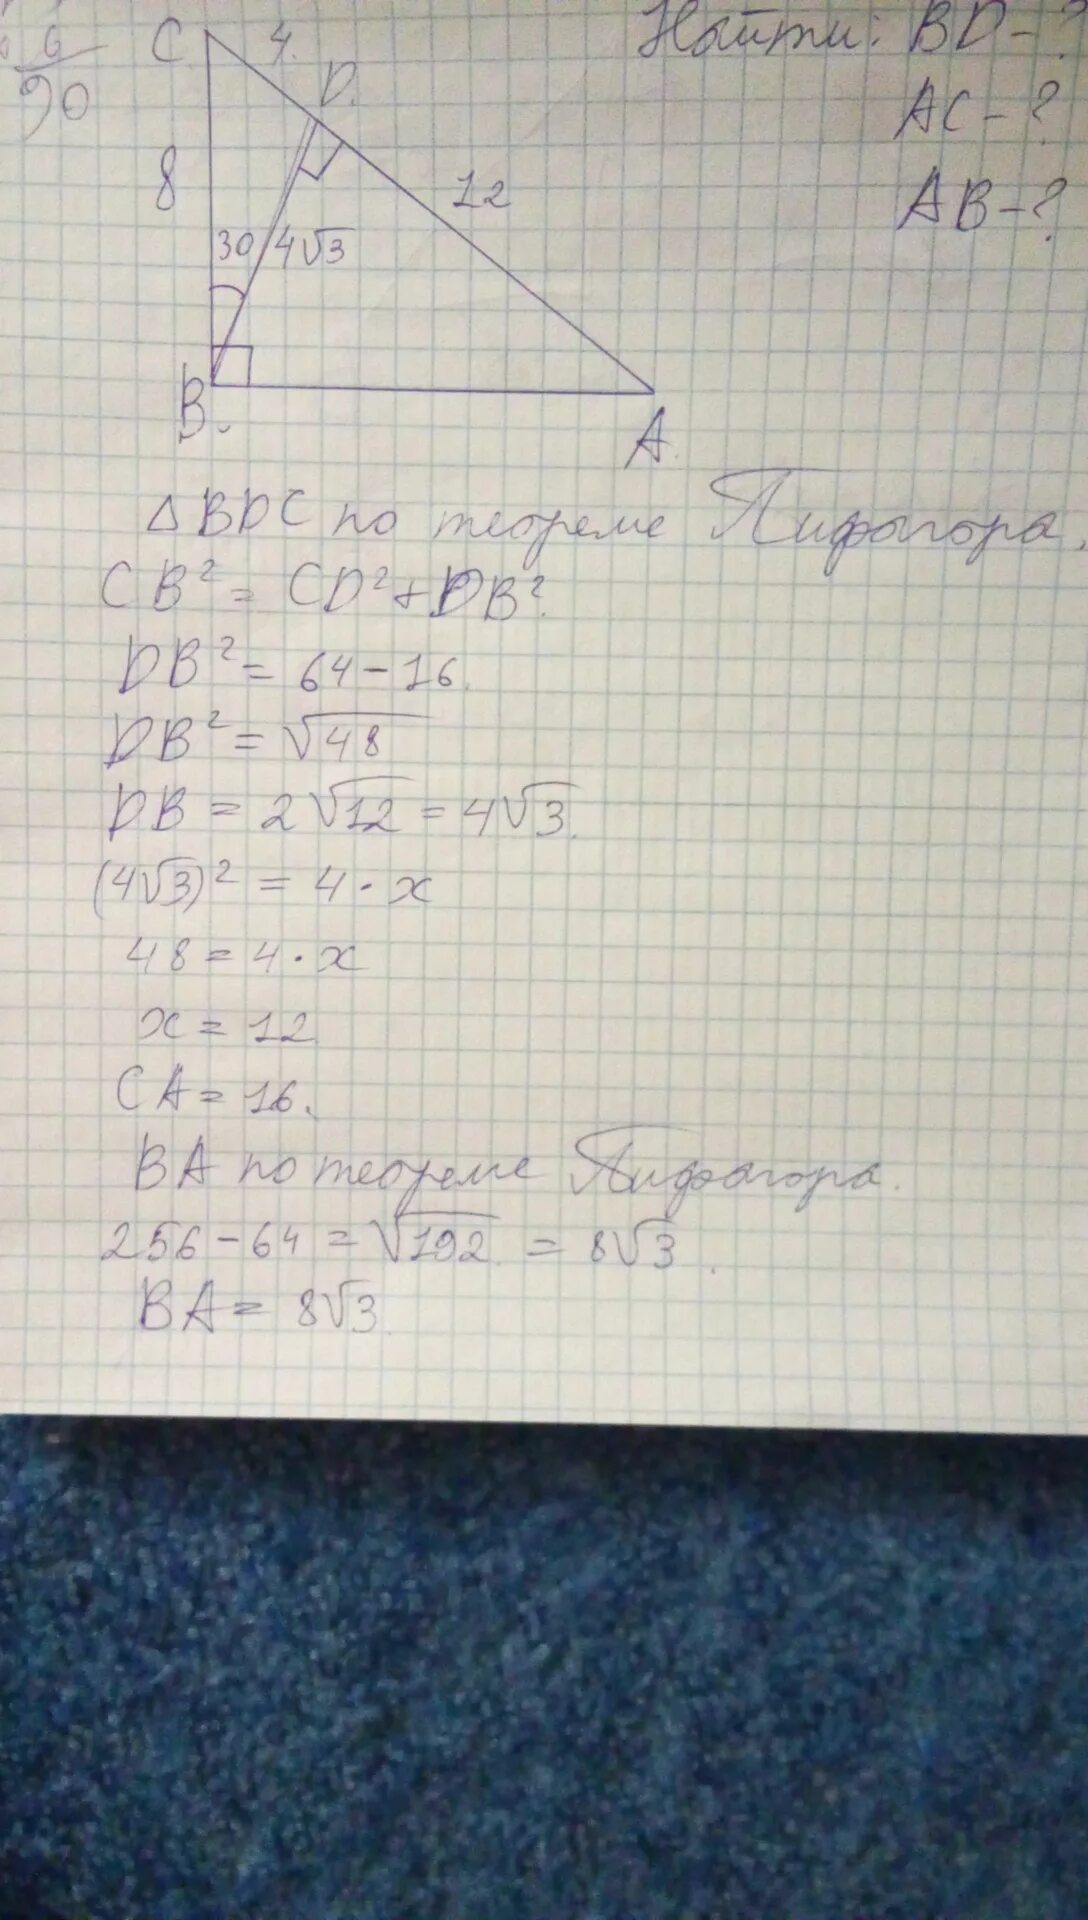 Найти: BD-?
AC-?
AB-?
6
90
C
4.
D.
8
12
30
4√3
B.
A.
△BDC по теореме Пифагора.
CB² = CD² + DB².
DB² = 64 - 16.
DB² = √48
DB = 2√12 = 4√3.
(4√3)² = 4 · x
48 = 4 · x
x = 12
CA = 16.
BA по теореме Пифагора.
256 - 64 = √192 = 8√3.
BA = 8√3.